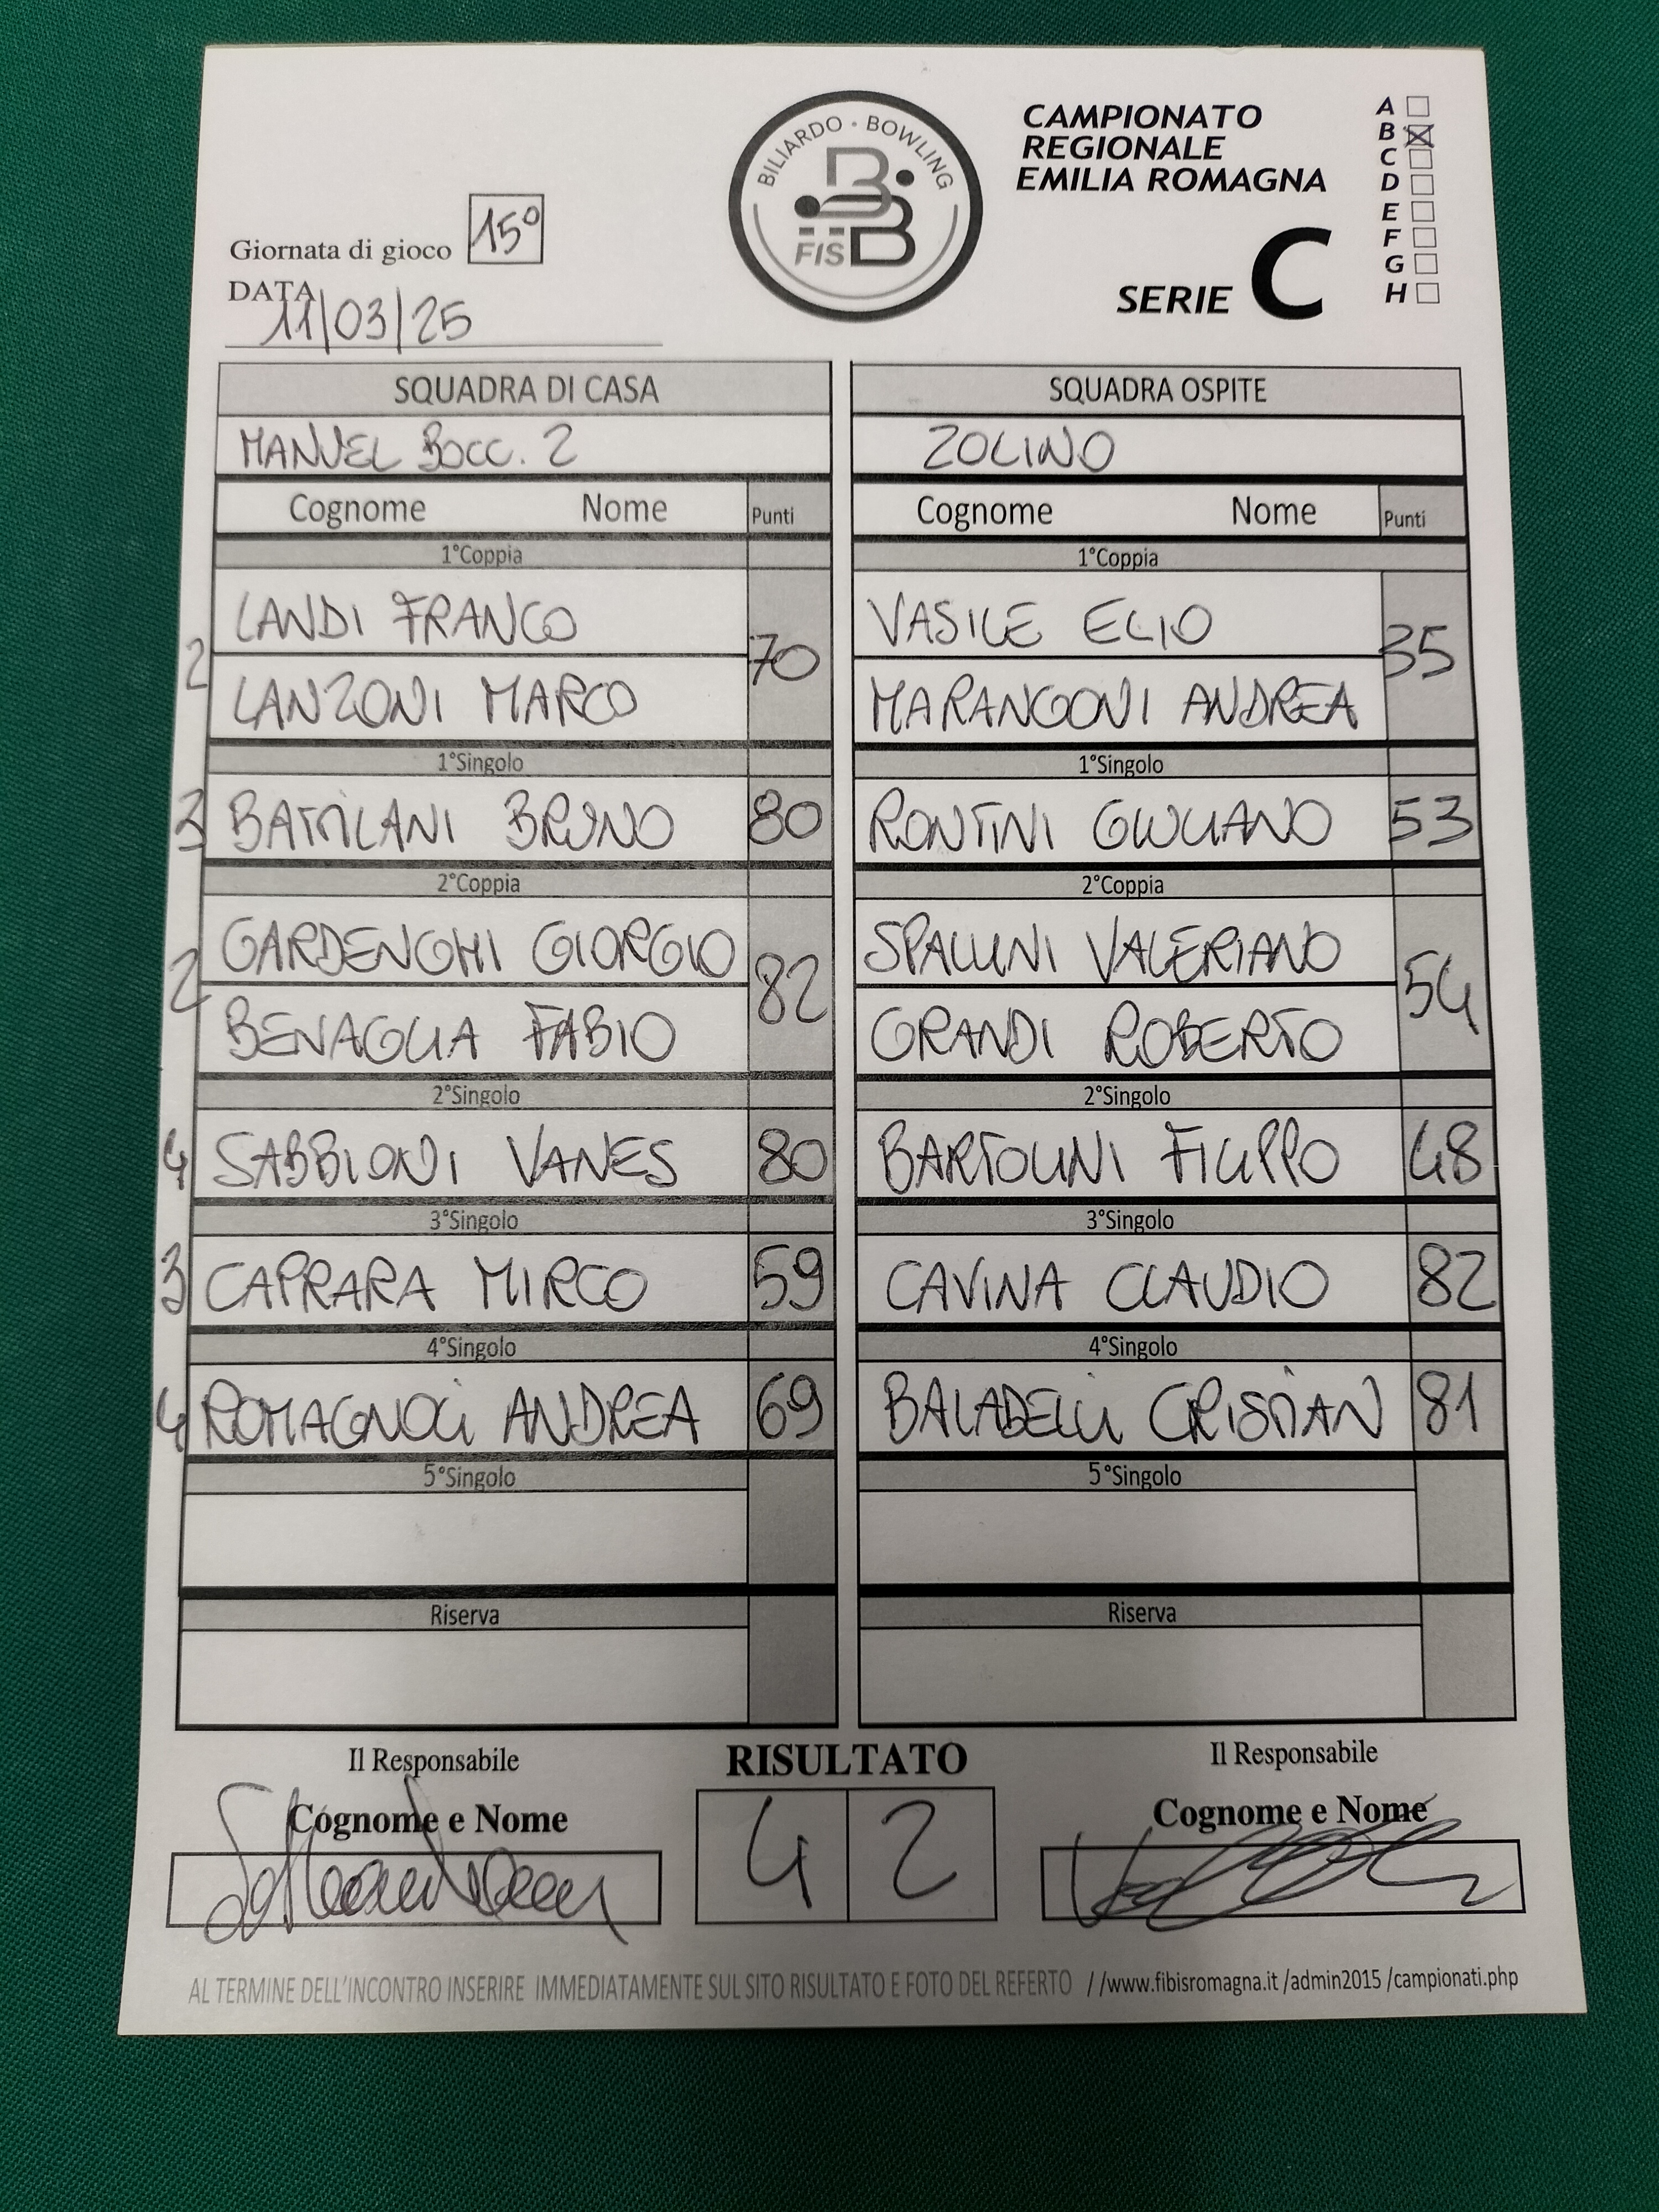 BILIARDO · BOWLING
FISBB
CAMPIONATO
REGIONALE
EMILIA ROMAGNA
SERIE C
A
B
C
D
E
F
G
H
Giornata di gioco 15°
DATA
11/03/25
SQUADRA DI CASA SQUADRA OSPITE
MANUEL BOCC. 2 ZOLINO
Cognome Nome Punti Cognome Nome Punti
1°Coppia 1°Coppia
LANDI FRANCO VASILE ELIO
2 70 35
LANZONI MARCO MARANGONI ANDREA
1°Singolo 1°Singolo
3 BATTILANI BRUNO 80 RONTINI GIULIANO 53
2°Coppia 2°Coppia
GARDENGHI GIORGIO SPALLINI VALERIANO
2 82 54
BENAGLIA FABIO GRANDI ROBERTO
2°Singolo 2°Singolo
4 SABBIONI VANES 80 BARTOLINI FILIPPO 48
3°Singolo 3°Singolo
3 CAPRARA MIRCO 59 CAVINA CLAUDIO 82
4°Singolo 4°Singolo
4 ROMAGNOLI ANDREA 69 BALADELLI CRISTIAN 81
5°Singolo 5°Singolo
Riserva Riserva
Il Responsabile RISULTATO Il Responsabile
Cognome e Nome 4 2 Cognome e Nome
AL TERMINE DELL'INCONTRO INSERIRE IMMEDIATAMENTE SUL SITO RISULTATO E FOTO DEL REFERTO //www.fibisromagna.it /admin2015 /campionati.php